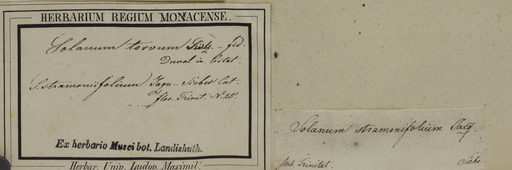 HERBARIUM REGIUM MONACENSE.
Solanum torvum
Dunal in litat.
S. stramonifolium Jaqu - Sieber Cat.
flor. Trinit. No. 25!
Ex herbario Musei bot. Landishuth.
Herbar. Univ. Ludov. Maximil.
Solanum stramonifolium Jacq.
Ins. Trinitat.
Siebe